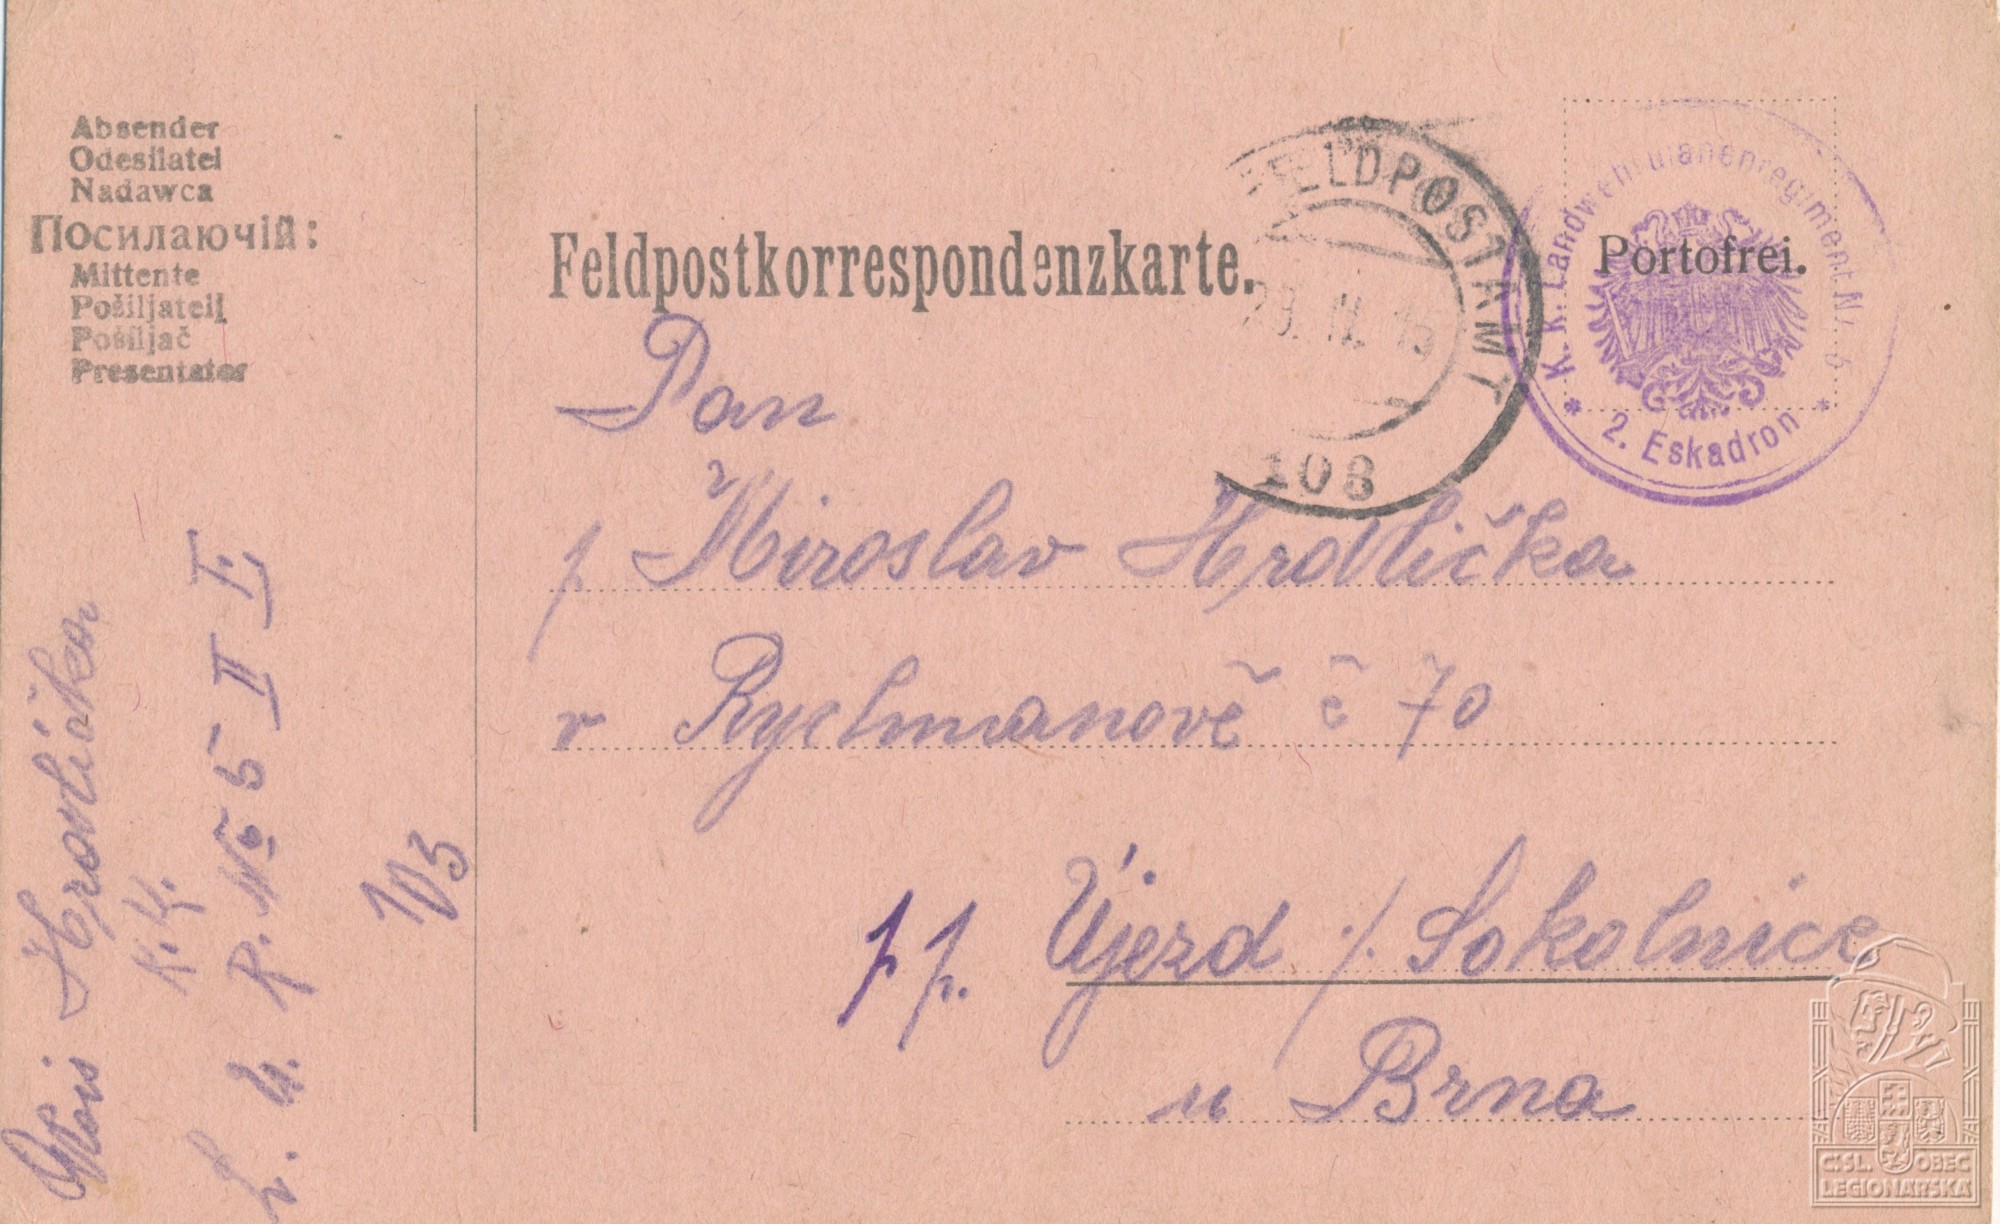 Absender
Odesilatel
Nadawca
Посилаючій:
Mittente
Pošiljatelj
Pošiljač
Presentator
Feldpostkorrespondenzkarte.
FELDPOSTAMT
108
Portofrei.
K. K. Landwehrulanenregiment Nr. 6
* 2. Eskadron *
Pan
p. Miroslav Hrdlička
v Rychmanově č 70
p p. Újezd /. Sokolnice
u Brna
Alois Hrdlička
K.K.
L. U. R. No 5 II F.
103
ČSL. OBEC
LEGIONÁŘSKÁ